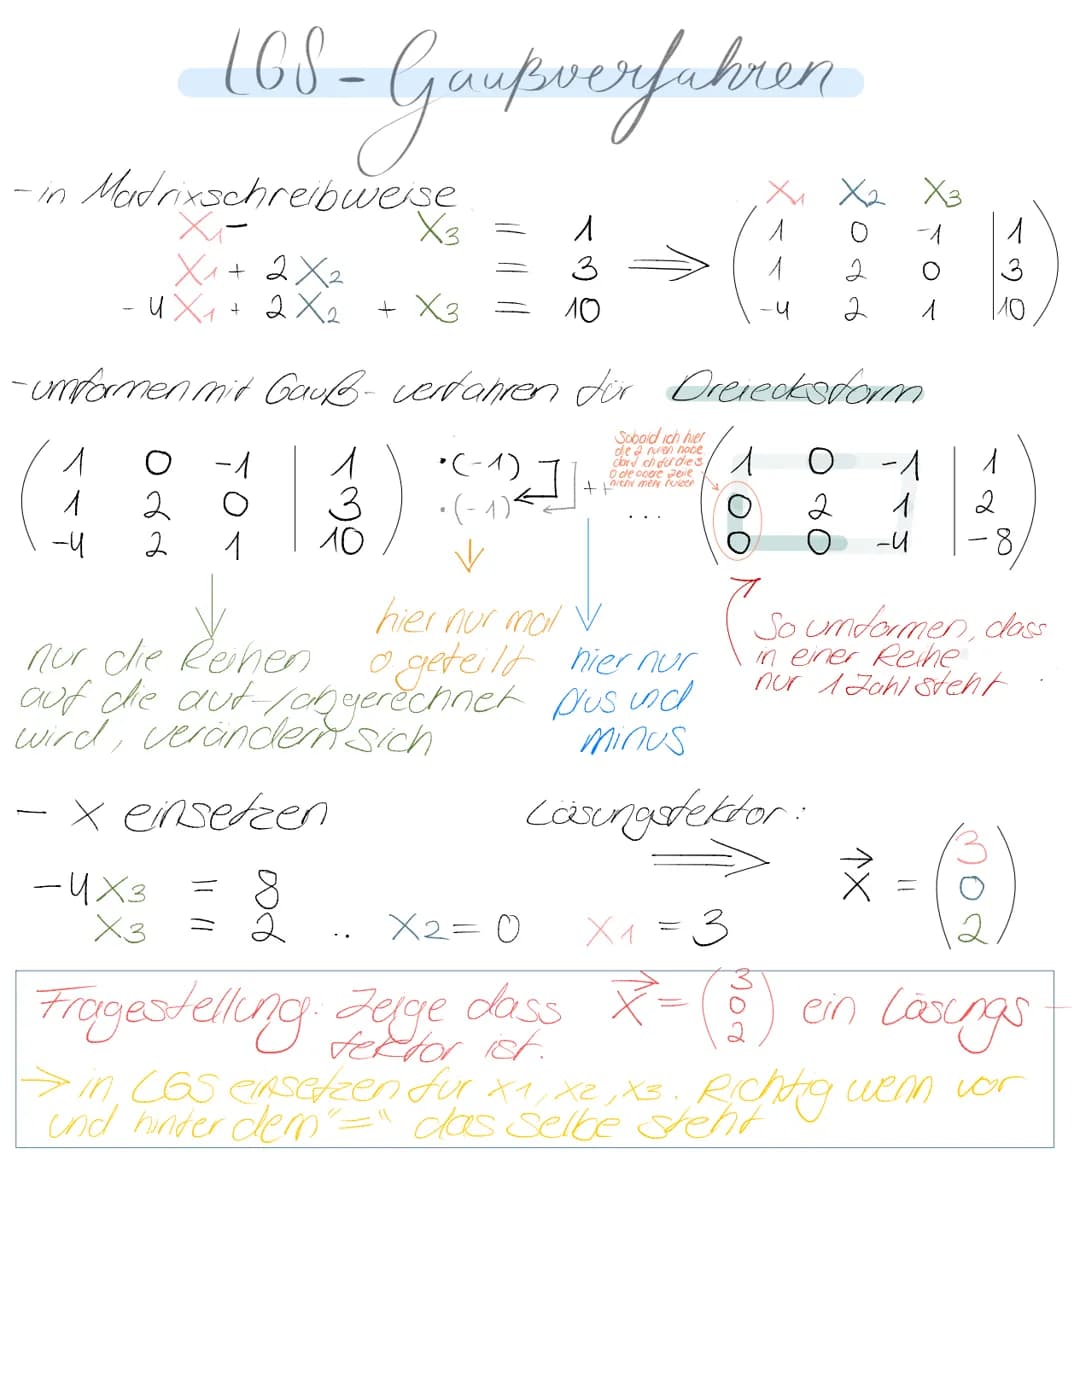 LGS - Gaußverfahren
- in Matrixschreibweise
X1 - X3 = 1
X1 + 2X2 = 3
- 4X1 + 2X2 + X3 = 10
⟹
X1 X2 X3
1 0 -1 | 1
1 2 0 | 3
-4 2 1 | 10
- umformen mit Gauß- verfahren für Dreiecksform
1 0 -1 | 1
1 2 0 | 3
-4 2 1 | 10
·(-1)
·(-1)
+ +
...
Sobald ich hier
die 2 nullen habe
darf ich für die 3.
0 die obere Zeile
nicht mehr nutzen
1 0 -1 | 1
0 2 1 | 2
0 0 -4 | -8
nur die Reihen
auf die auf-/abgerechnet
wird, verändern sich
hier nur mal
o geteilt
hier nur
plus und
minus
So umformen, dass
in einer Reihe
nur 1 Zahl steht
- X einsetzen
-4X3 = 8
X3 = 2 .. X2 = 0 X1 = 3
Lösungsfektor:
⟹
x⃗ = (3 0 2)
Fragestellung: Zeige dass x⃗ = (3 0 2) ein Lösungs -
fektor ist.
→ in LGS einsetzen für x1, x2, x3. Richtig wenn vor
und hinter dem "=" das selbe steht